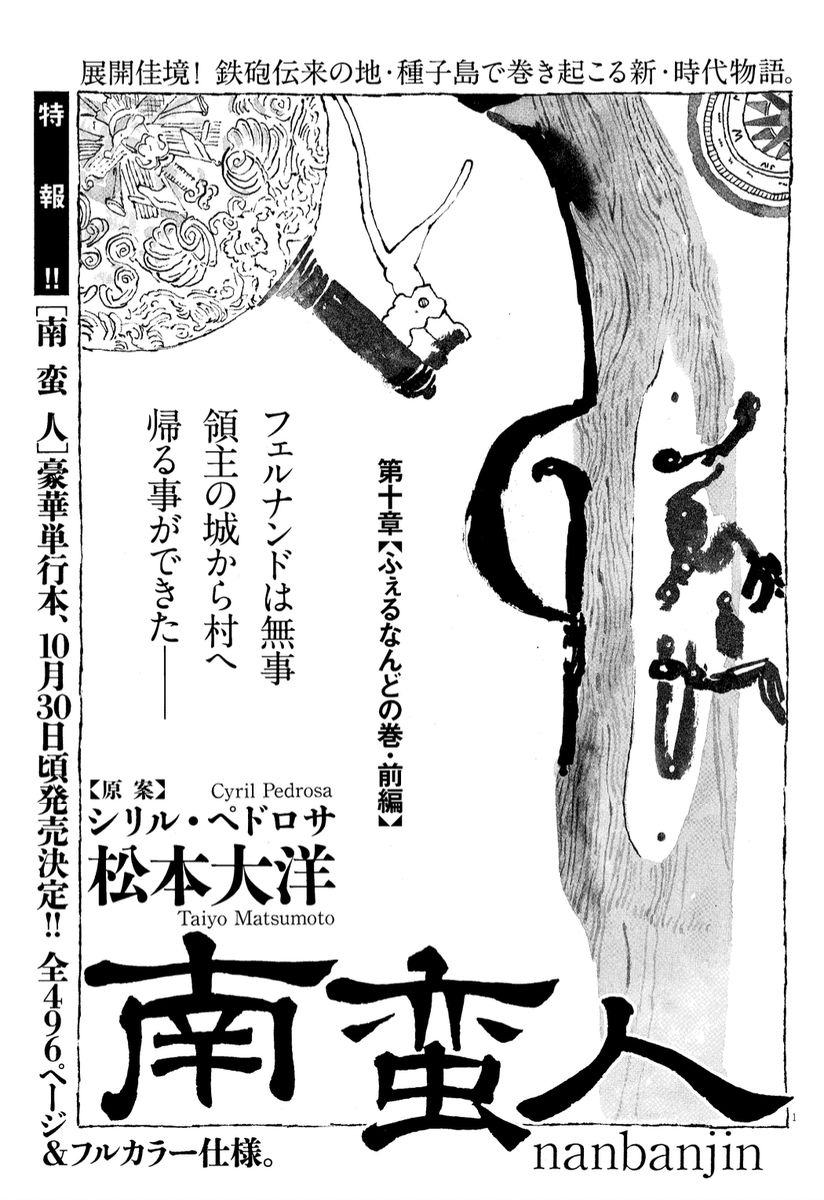 展開佳境! 鉄砲伝来の地・種子島で巻き起こる新・時代物語。
特報!!
[南蛮人]豪華単行本、10月30日頃発売決定!! 全496ページ
&フルカラー仕様。
第十章【ふぇるなんどの巻・前編】
フェルナンドは無事
領主の城から村へ
帰る事ができた──
【原案】
Cyril Pedrosa
シリル・ペドロサ
松本大洋
Taiyo Matsumoto
南蛮人
nanbanjin
1